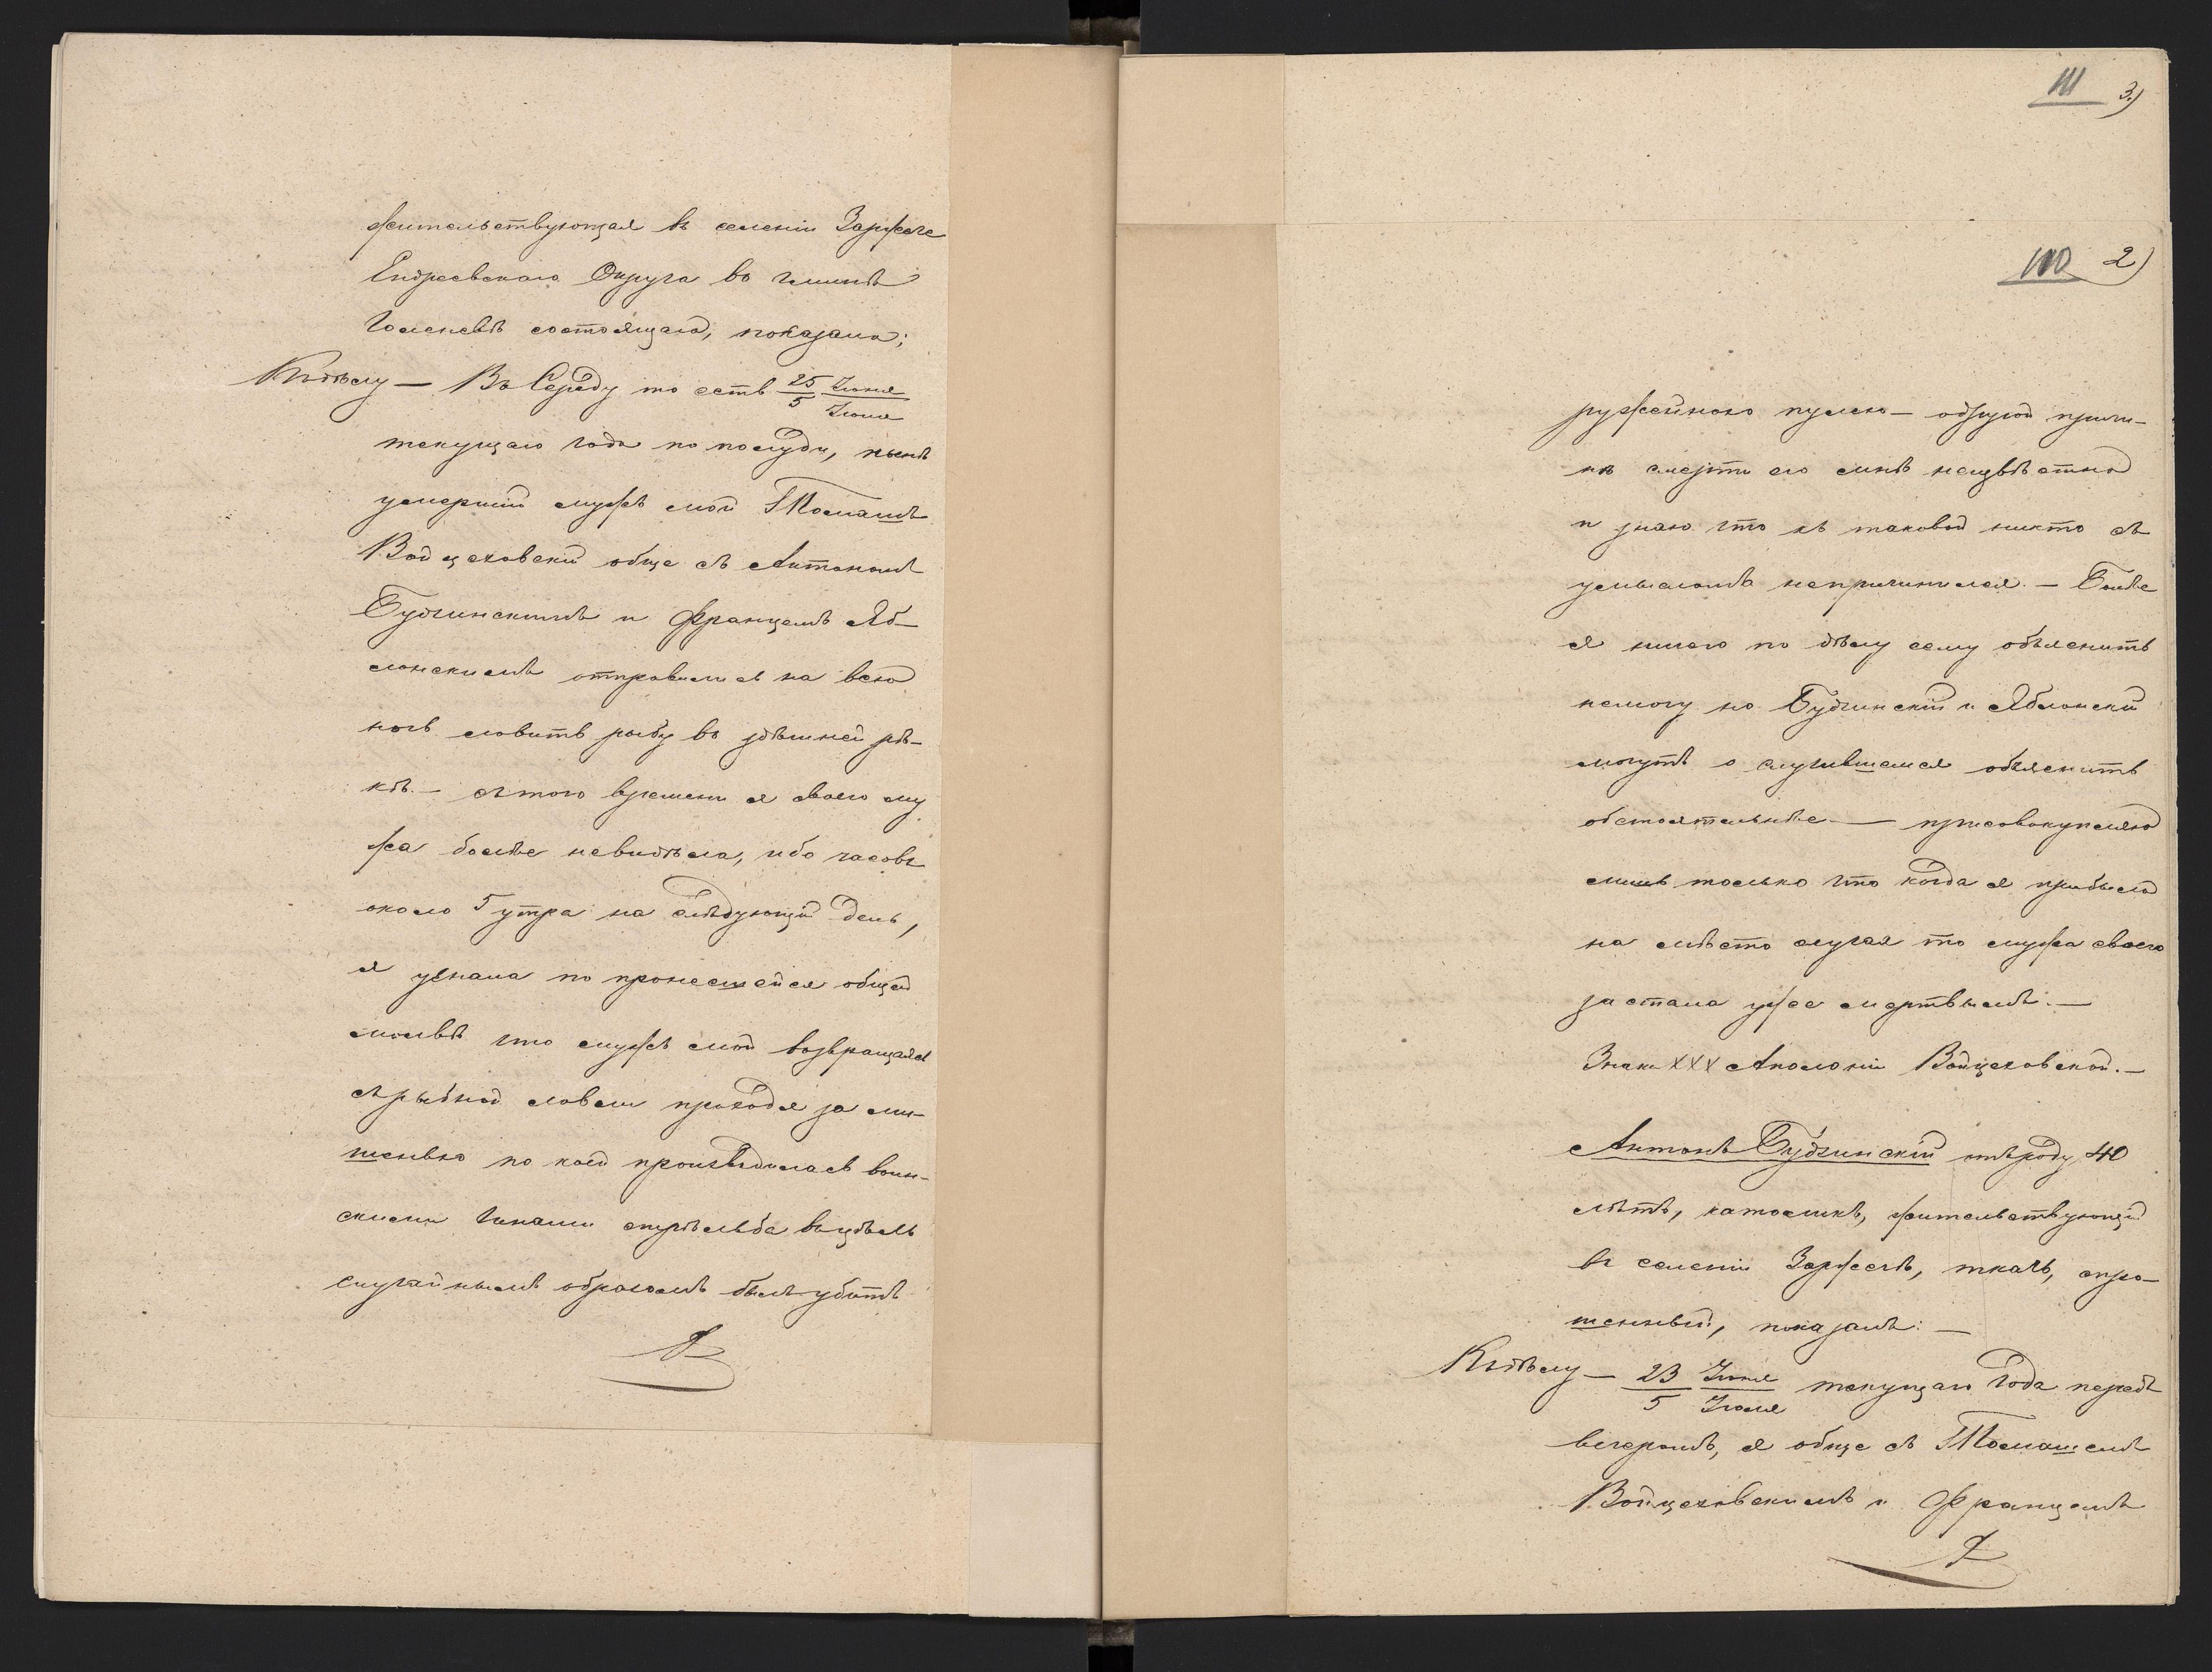 жительствующая въ селеніи Заржече
Ендреевскаго Округа во гминѣ
состоящаго, показала;
Къ дѣлу — Въ Середу то есть 25/5 Іюня/Іюля
текущаго года по полудн, нынѣ
умершій мужъ мой Томашъ
Войцеховскій обще съ Антономъ
Будзинскимъ и Францемъ Яб-
лонскимъ отправились на всю
ночь ловить рыбу въ здѣшней рѣ-
кѣ. — съ того времени я своего му
жа болѣе невидѣла, ибо часовъ
около 5 утра на слѣдующій день,
я узнала по пронесшейся общей
молвѣ что мужъ мой возвращаясь
съ рыбной ловли проходя за ми-
шенью по коей производилась воин-
скими чинами стрѣльба въ цѣль
случайнымъ образомъ былъ убитъ
III 3.)
110 2)
ружейною пулею — о другой причи-
нѣ смерти его мнѣ неизвѣстно
и знаю что къ таковой никто съ
умысломъ непричинился. — Болѣе
я ничего по дѣлу сему объяснить
немогу но Будзинскій и Яблонскій
могутъ о случившемся объяснить
обстоятельнѣе — присовокупляю
лишь только что когда я прибыла
на мѣсто случая то мужа своего
застала уже мертвымъ. —
Знаки ХХХ Аполоніи Войцеховской. —
Антонъ Будзинскій отъ роду 40
лѣтъ, католикъ, жительствующій
въ селеніи Заржечѣ, ткачъ, спро-
шенный, показалъ: —
Къ дѣлу — 23/5 Іюня/Іюля текущаго года передъ
вечеромъ, я обще съ Томашемъ
Войцеховскимъ и Францемъ